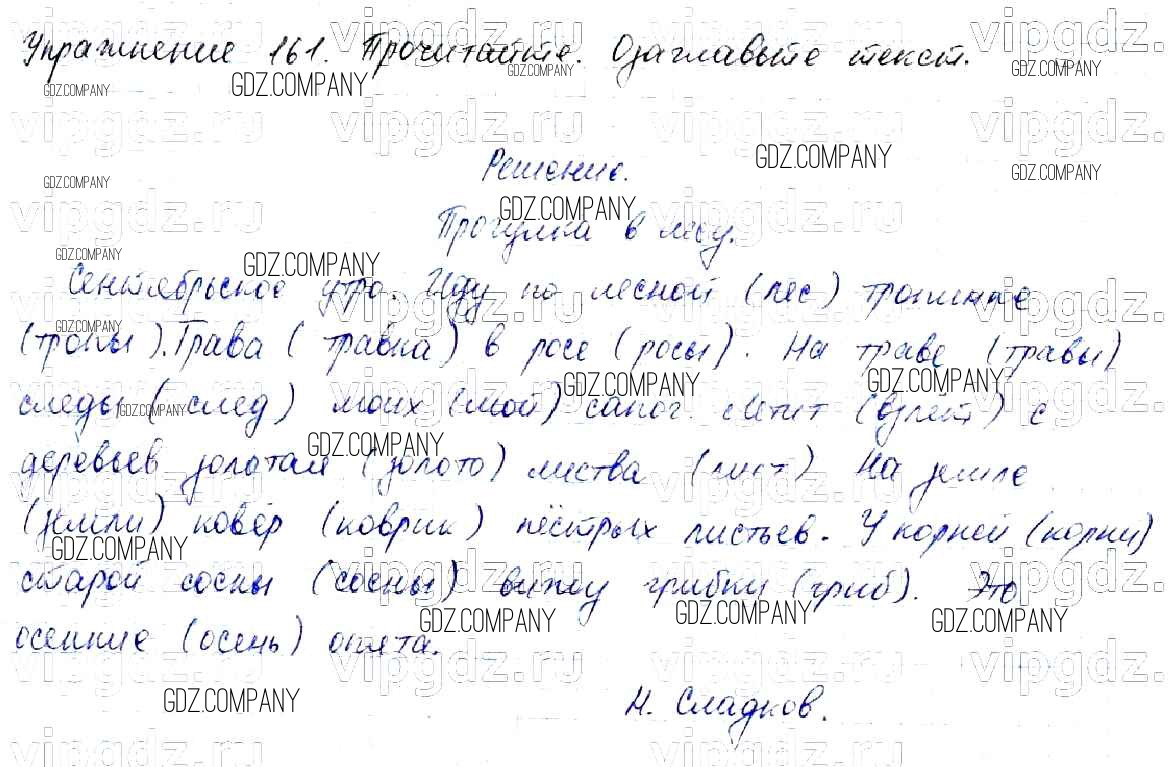 Упражнение 161. Прочитайте. Озаглавьте текст.
Решение.
Прогулка в лесу.
Сентябрьское утро. Иду по лесной (лес) тропинке
(тропы). Трава (травка) в росе (росы). На траве (травы)
следы (след) моих (мой) сапог. Летит (взлёт) с
деревьев золотая (золото) листва (лист). На земле
(земли) ковёр (коврик) пёстрых листьев. У корней (корни)
старой сосны (сосны) вижу грибки (гриб). Это
осенние (осень) опята.
Н. Сладков.
vipgdz.ru
GDZ.COMPANY